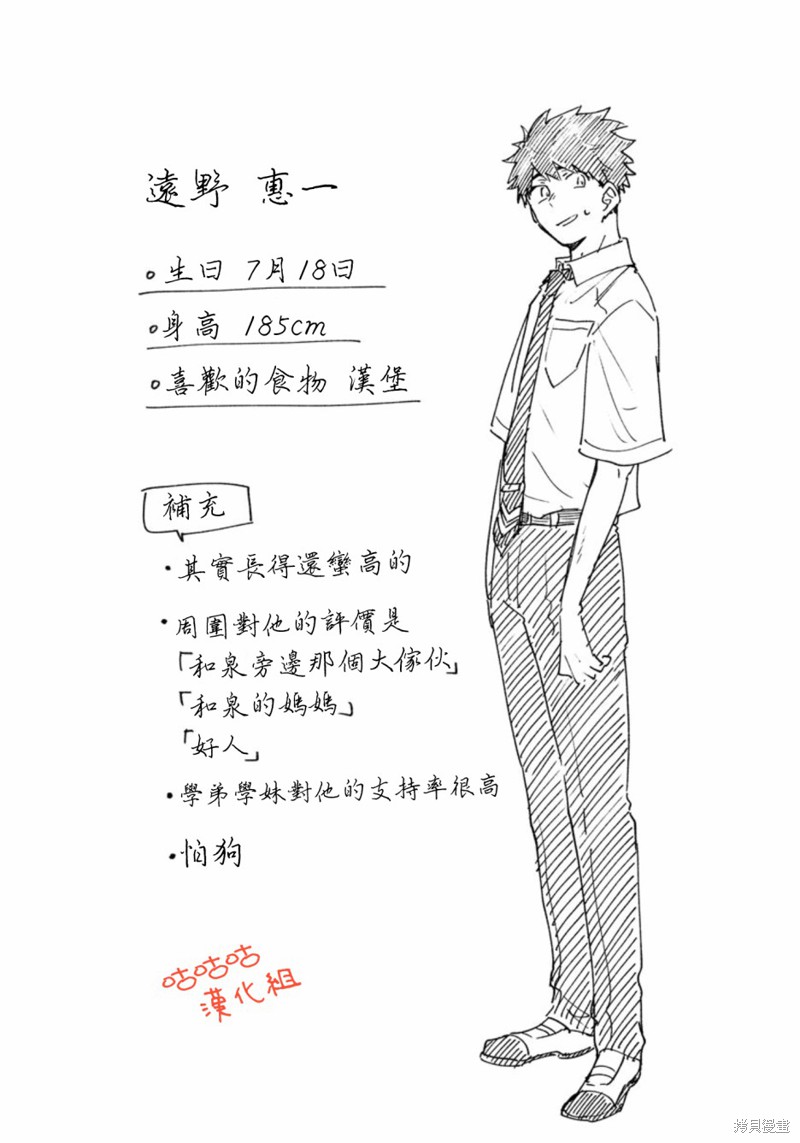 遠野 惠一
。生日 7月18日
。身高 185cm
。喜歡的食物 漢堡
補充
・其實長得還蠻高的
・周圍對他的評價是
「和泉旁邊那個大傢伙」
「和泉的媽媽」
「好人」
・學弟學妹對他的支持率很高
・怕狗
咕咕咕
漢化組
拷貝漫畫